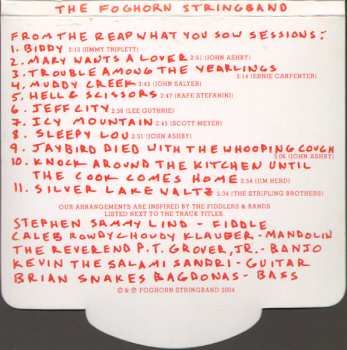 THE FOGHORN STRINGBAND
FROM THE REAP WHAT YOU SOW SESSIONS:
1. BIDDY 2:13 (JIMMY TRIPLETT)
2. MARY WANTS A LOVER 2:51 (JOHN ASHBY)
3. TROUBLE AMONG THE YEARLINGS 3:14 (ERNIE CARPENTER)
4. MUDDY CREEK 2:43 (JOHN SALYER)
5. HELL & SCISSORS 2:47 (RAFE STEFANINI)
6. JEFF CITY 2:58 (LEE GUTHRIE)
7. ICY MOUNTAIN 2:45 (SCOTT MEYER)
8. SLEEPY LOU 2:31 (JOHN ASHBY)
9. JAYBIRD DIED WITH THE WHOOPING COUGH
3:06 (JOHN ASHBY)
10. KNOCK AROUND THE KITCHEN UNTIL
THE COOK COMES HOME 2:34 (JIM HERD)
11. SILVER LAKE WALTZ 5:34 (THE STRIPLING BROTHERS)
OUR ARRANGEMENTS ARE INSPIRED BY THE FIDDLERS & BANDS
LISTED NEXT TO THE TRACK TITLES.
STEPHEN SAMMY LIND - FIDDLE
CALEB ROWDYCHOUDY KLAUDER - MANDOLIN
THE REVEREND P.T. GROVER, JR. - BANJO
KEVIN THE SALAMI SANDRI - GUITAR
BRIAN SNAKES BAGDONAS - BASS
© ℗ FOGHORN STRINGBAND 2004